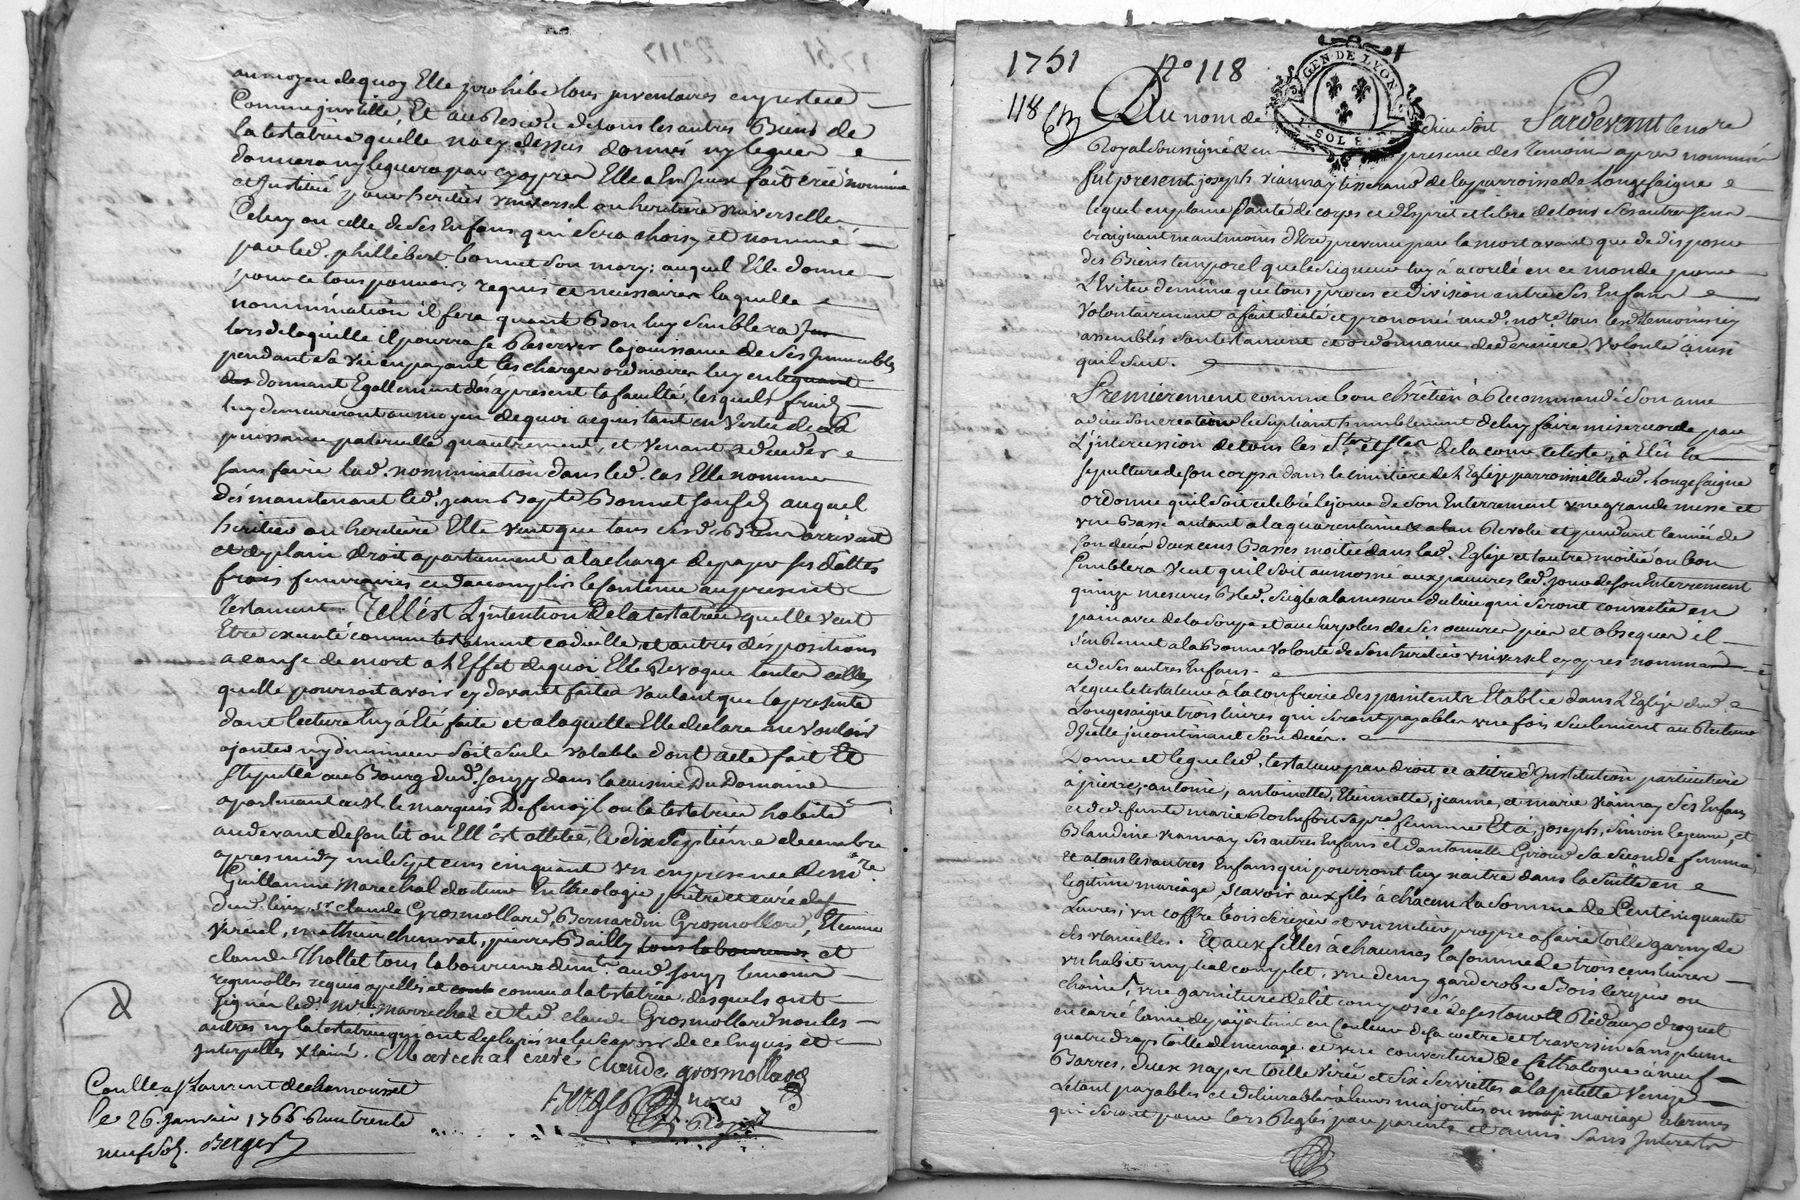 au moyen de quoy Elle prohibe tous inventaires en justice
Comme inutille, Et au Residu de tous les autres Biens de
la testatrice quelle na cy dessus donnés ny legués
donnera ny leguera par cy apres Elle a En iceux fait créé nommé
et Institué pour heritier universel ou heritiere universelle
Celuy ou celle de ses Enfans qui sera choisy et nommé
par led. phillibert bonnet son mary; auquel Elle donne
pour ce tous pouvoirs requis et necessaires laquelle
nommination il fera quant Bon luy semblera
lors de laquelle il pourra se Reserver la jouissance de ses Immeubles
pendant sa vie en payant les charges ordinaires luy en
donnant Egallement des apresent la faculté, lesquels fruits
luy demeureront au moyen de quoi acquis tant en Vertu de la
puissance paternelle qu'autrement, et Venant a deceder
sans faire lad. nommination dans led. cas Elle nomme
dès maintenant led. jean Bapte Bonnet son fils auquel
heritier ou heritiere Elle veut que tous sesd. Biens arrivent
et de plain droit apartiennent a la charge de payer ses dettes
frais funeraires et daccomplir le contenu au present
Testament. Tell'est L'jntention De la testatrice quelle veut
Etre executé comme testament codicille et autres dispositions
a cause de mort a L'Effet de quoi Elle Revoque toutes celles
quelle pourroit avoir cy devant faites voulant que la presente
dont lecture luy à Eté faite et a laquelle Elle declare ne vouloir
ajouter ny diminuer soit seule valable dont acte fait Et
stipullé au Bourg dud. Souzy dans la cuisine Du Domaine
apartenant a le marquis De fenoyl ou la testatrice habite
au devant de son lit ou Ell'est allitée, le dix septième decembre
apres midy mil sept cens cinquant un en presence de mre
Guillaume Marechal docteur En theologie prêtre et curé
dud. lieu, sr claude Grosmollard, Bernardin Grosmollard, Etienne
Viricel, mathieu chenevat, pierre Bailly tous laboureurs et
claude Thollet tous laboureurs demts. aud. Souzy temoins
requis apellés et connu a la testatrice, desquels ont
signé led. mre marechal et led. claude Grosmollard non les
autres ny la testatrice qui ont declarés ne le scavoir de ce Enquis et
Interpellés . Marechal curé. claude grosmollard
Berger nore
Royal
Conllé a St Laurent de chamousset
le 26. Janvier 1766 Reçu trente
neuf sols. Berger
1751 No 118
118
GEN DE LYON
SOL
Au nom de dieu soit Pardevant le nore
Royal soussigné et en presence des temoins apres nommés
fut present joseph viannay tisserand de la parroisse de Longesaigne
lequel en plaine santé de corps et d'Esprit et libre de tous ses autres sens
craignant neantmoins d'Etre prevenu par la mort avant que de disposer
des Biens temporel que le Seigneur luy à acordé en ce monde pour
Eviter de même que tous proces et Division entre ses Enfans
volontairement a fait dicté et prononcé aud. nore. tous lesd. temoins cy
assemblés son testament et ordonnance de derniere volonté ainsi
qu'il suit.
Premierement comme bon chrêtien à Recommandé son ame
a dieu son createur le supliant humblement de luy faire misericorde par
L'intercession de tous les sts. et stes. de la cour celeste, à Elû la
sepulture de son corps dans le cimitiere de L'Eglise parroissielle dud. Longesaigne
ordonne qu'il soit celebré le jour de son Enterrement une grande messe et
une Basse autant a la quarantaine et a lan Revolu et pendant lannée de
son decès deux cens Basses moitié dans lad. Eglise et lautre moitié ou bon
semblera veut qu'il soit aumosné aux pauvres led. jour de son Enterrement
quinze mesures Bled seigle a la mesure du lieu qui seront converties en
pain avec de la soupe et au surplus de ses oeuvres pies et obseques il
s'en Remet a la Bonne volonté de son heritier universel cy apres nommé
et de ses autres Enfans.
Legue le testateur à la confrerie des penitents Etablie dans L'Eglise dud.
Longesaigne trois livres qui seront payables une fois seulement au Recteur
d'icelle jncontinant son decès.
Donne et legue led. testateur par droit et a titre d'Institution particuliere
à pierre, antoine, antoinette, Etiennette, jeanne, et marie viannay ses Enfans
et de deffunte marie Rochefort sa pre. femme Et à joseph, simon lejeune, et
Blandine viannay ses autres Enfans et d'antoinette Giroud sa seconde femme
et a tous les autres Enfans qui pourront luy naitre dans la suitte en
legitime mariage, scavoir aux fils à chacun la somme de Cent cinquante
Livres; un coffre bois cerizier et un metier propre a faire toille garny de
ses utancilles. Et aux filles à chacunes la somme de trois cens livres
un habit nuptial complet, une demy garderobe Bois cerizier ou
chaine, une garniture de lit composée de ses tour de Rideaux droguet
en carré laine de païs teint en couleur de sa coetre et traversin sans plume
quatre draps toille de menage et une couverture de Cathalogne à neuf
Barres, deux nappes toille virée et six serviettes à la petite Venize
Le tout payables et delivrables à leurs majorités ou mariage a termes
qui seront pour lors Reglés par parents et amis. sans Interets